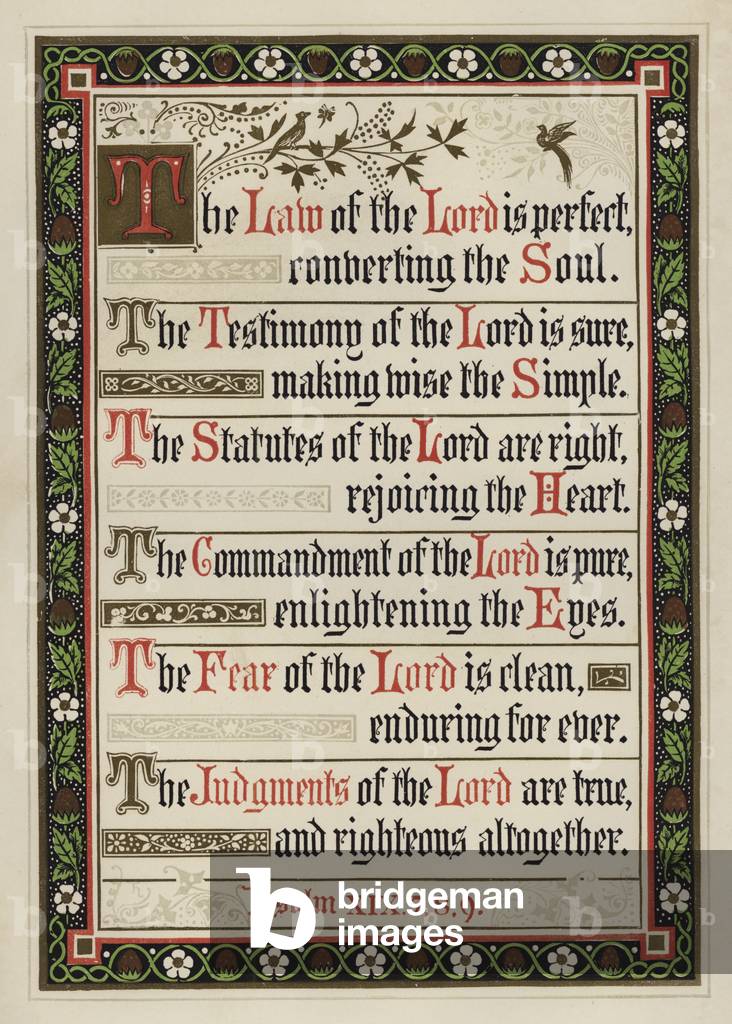 The Law of the Lord is perfect,
converting the Soul.
The Testimony of the Lord is sure,
making wise the Simple.
The Statutes of the Lord are right,
rejoicing the Heart.
The Commandment of the Lord is pure,
enlightening the Eyes.
The Fear of the Lord is clean,
enduring for ever.
The Judgments of the Lord are true,
and righteous altogether.
Psalm XIX. 7, 8, 9.
bridgeman
images